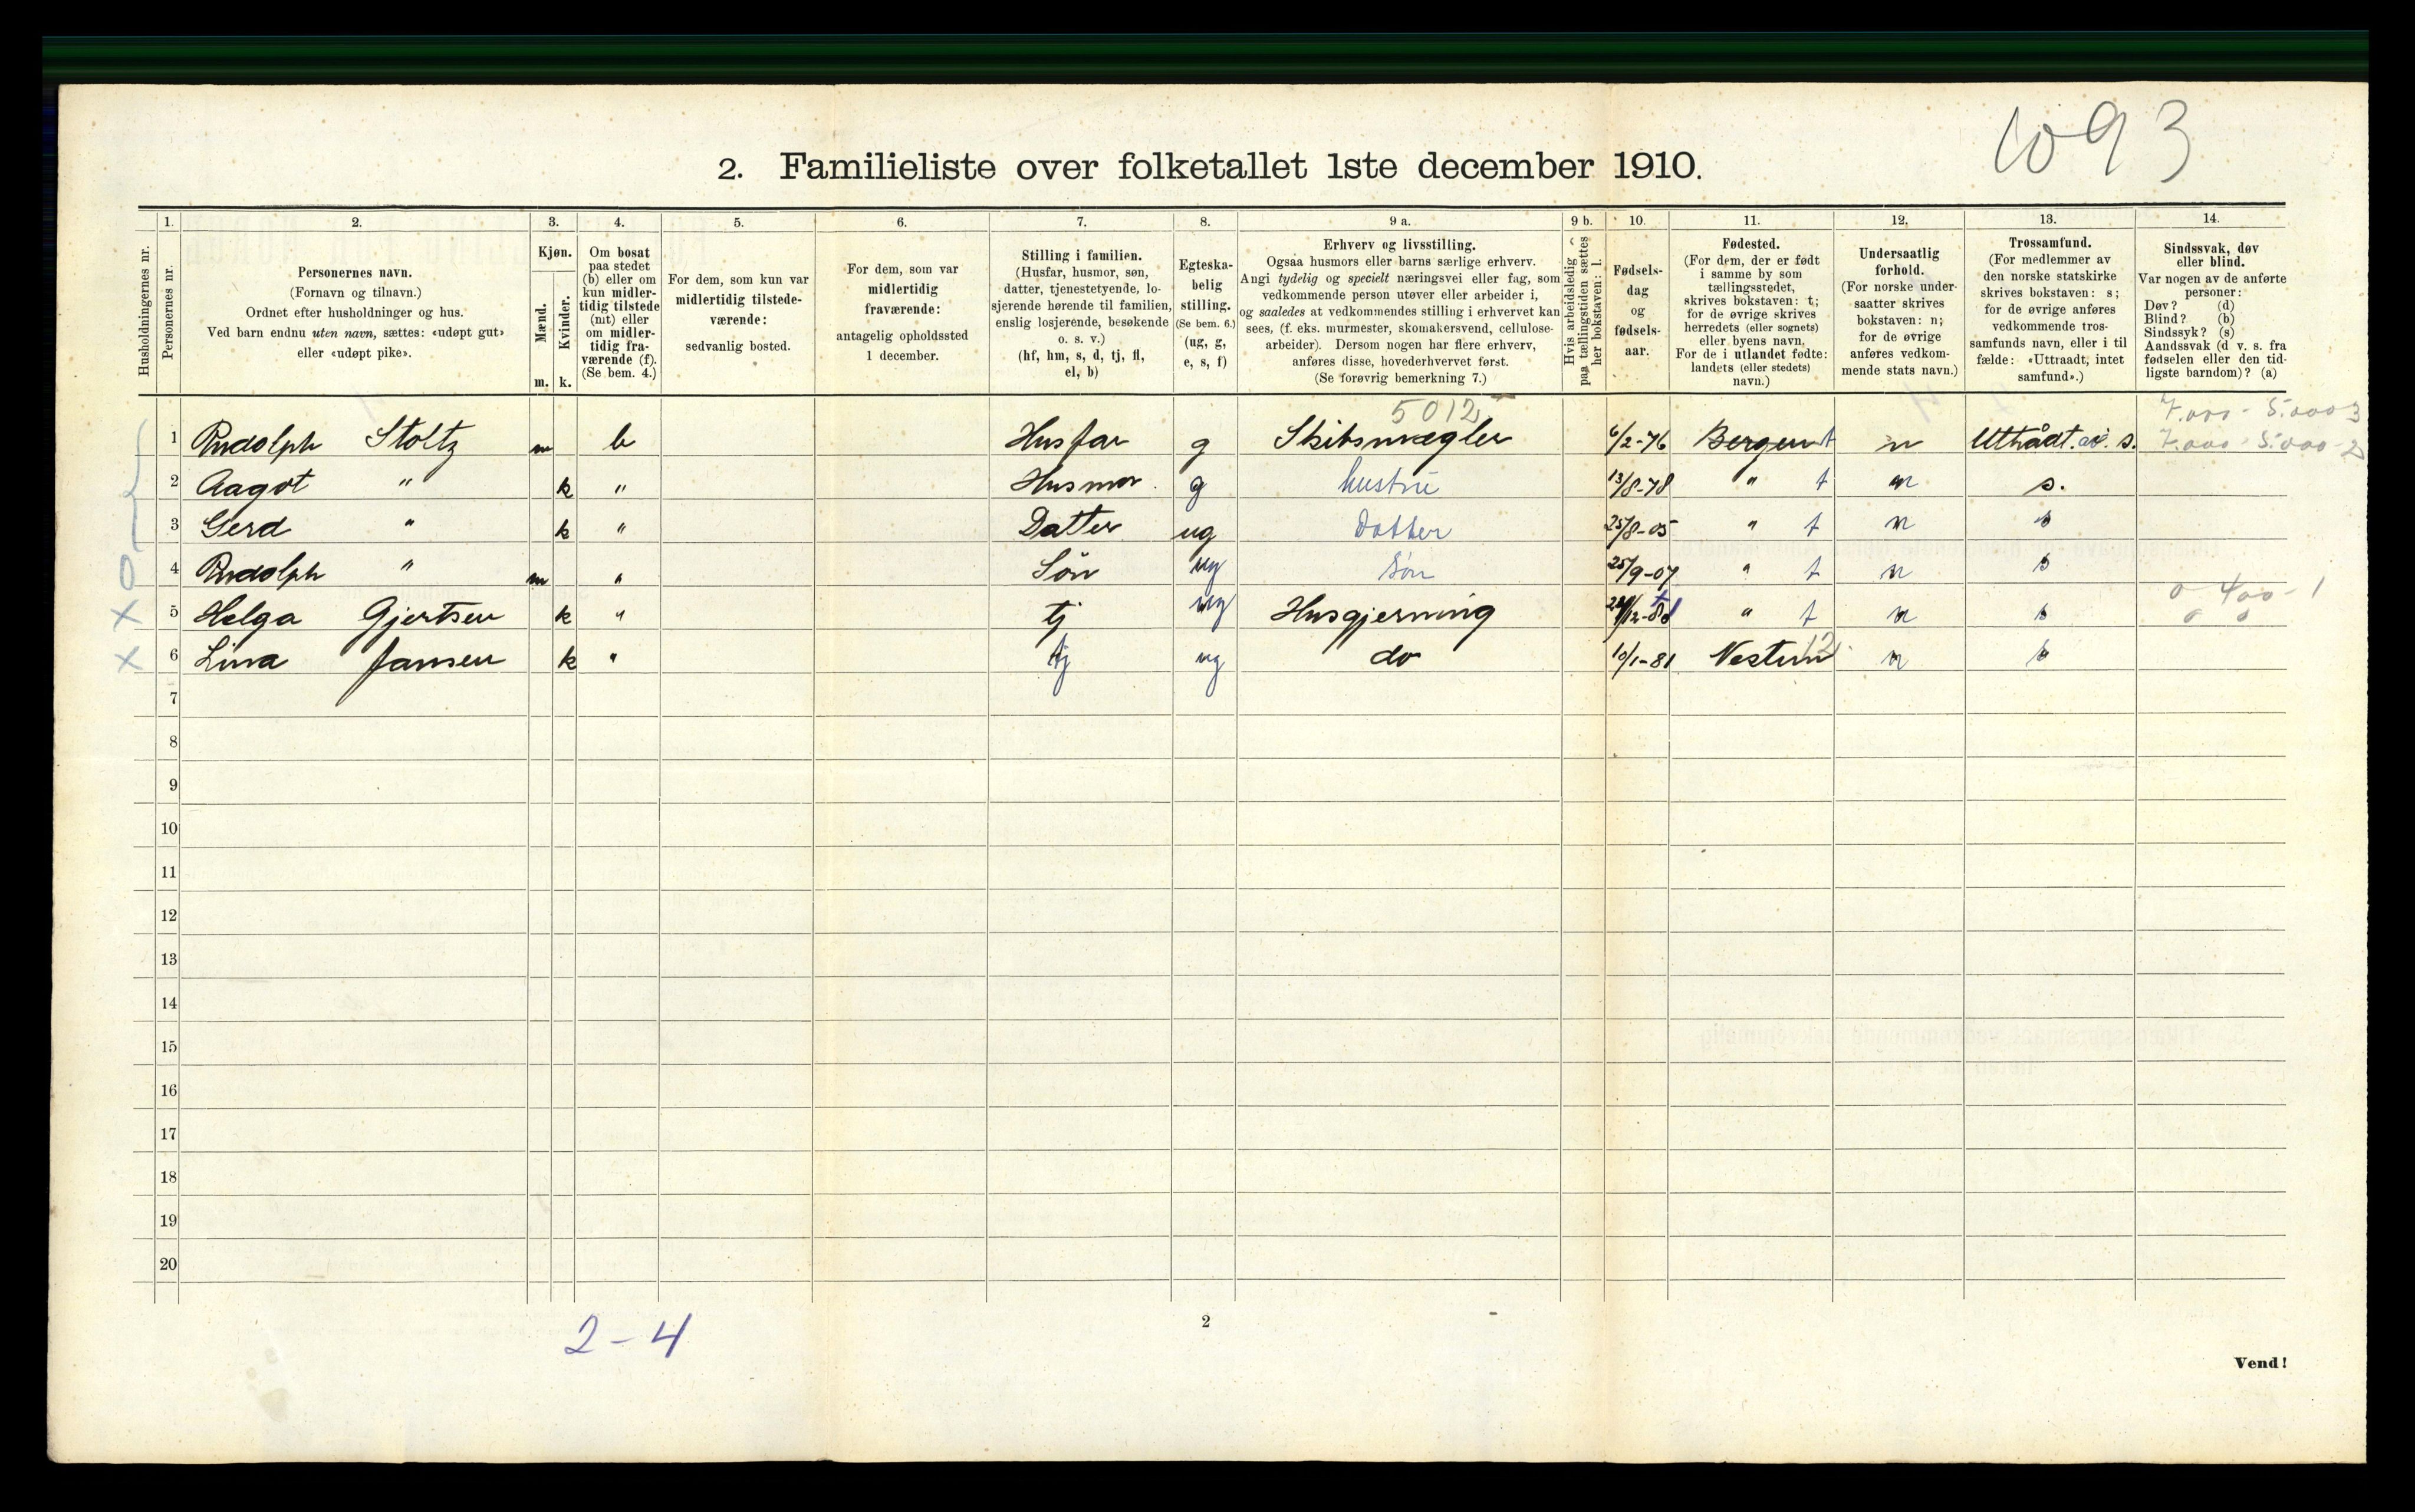 1093
2. Familieliste over folketallet 1ste december 1910.
Husholdningernes nr.
1. Personernes nr.
2. Personernes navn. (Fornavn og tilnavn.) Ordnet efter husholdninger og hus. Ved barn endnu uten navn, sættes: «udøpt gut» eller «udøpt pike».
3. Kjøn. Mænd. m. Kvinder. k.
4. Om bosat paa stedet (b) eller om kun midlertidig tilstede (mt) eller om midlertidig fraværende (f). (Se bem. 4.)
5. For dem, som kun var midlertidig tilstedeværende: sedvanlig bosted.
6. For dem, som var midlertidig fraværende: antagelig opholdssted 1 december.
7. Stilling i familien. (Husfar, husmor, søn, datter, tjenestetyende, losjerende hørende til familien, enslig losjerende, besøkende o. s. v.) (hf, hm, s, d, tj, fl, el, b)
8. Egteskabelig stilling. (Se bem. 6.) (ug, g, e, s, f)
9 a. Erhverv og livsstilling. Ogsaa husmors eller barns særlige erhverv. Angi tydelig og specielt næringsvei eller fag, som vedkommende person utøver eller arbeider i, og saaledes at vedkommendes stilling i erhvervet kan sees, (f. eks. murmester, skomakersvend, cellulosearbeider). Dersom nogen har flere erhverv, anføres disse, hovederhvervet først. (Se forøvrig bemerkning 7.)
9 b. Hvis arbeidsledig paa tællingstiden sættes her bokstaven: l.
10. Fødselsdag og fødselsaar.
11. Fødested. (For dem, der er født i samme by som tællingsstedet, skrives bokstaven: t; for de øvrige skrives herredets (eller sognets) eller byens navn. For de i utlandet fødte: landets (eller stedets) navn.)
12. Undersaatlig forhold. (For norske undersaatter skrives bokstaven: n; for de øvrige anføres vedkommende stats navn.)
13. Trossamfund. (For medlemmer av den norske statskirke skrives bokstaven: s; for de øvrige anføres vedkommende trossamfunds navn, eller i tilfælde: «Uttraadt, intet samfund».)
14. Sindssvak, døv eller blind. Var nogen av de anførte personer: Døv? (d) Blind? (b) Sindssyk? (s) Aandssvak (d. v. s. fra fødselen eller den tidligste barndom)? (a)
5012
7.000 - 5.000 3
1 Rudolph Stoltz m b Husfar g Skibsmægler 6/2-76 Bergen t n Uttrådt av s. 7.000 - 5.000 - 2
2 Aagot " k " Husmor g hustru 13/8-78 " t n s.
3 Gerd " k " Datter ug Datter 25/8-05 " t n s
4 Rudolph " m " Sön ug Sön 25/9-07 " t n s
0 400 - 1
5 Helga Gjertsen k " tj ug Husgjerning " t n s 0 0
6 Lina Jansen k " tj ug do 10/1-81 Nestun 12 n s
7
8
9
10
11
12
13
14
15
16
17
18
19
20
2-4
2
Vend!